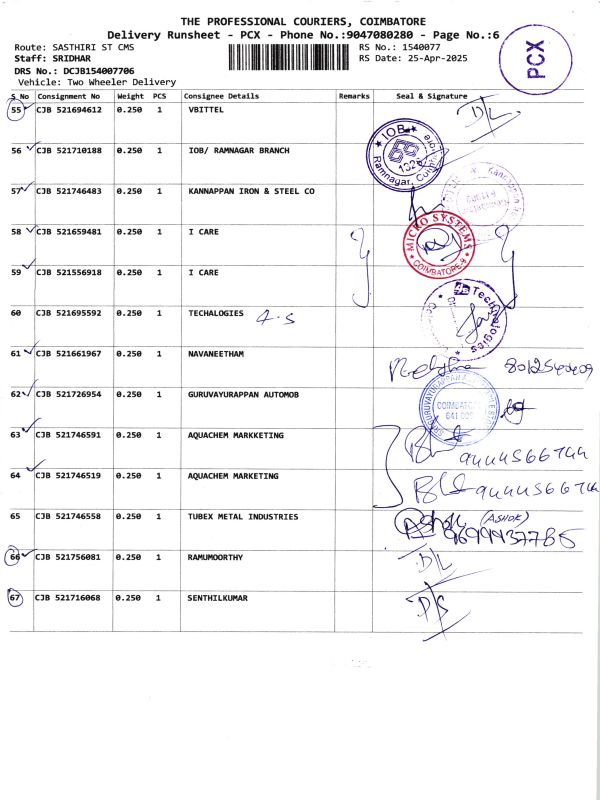 THE PROFESSIONAL COURIERS, COIMBATORE
Delivery Runsheet - PCX - Phone No.:9047080280 - Page No.:6
Route: SASTHIRI ST CMS RS No.: 1540077
Staff: SRIDHAR RS Date: 25-Apr-2025
DRS No.: DCJB154007706
Vehicle: Two Wheeler Delivery
PCX
S No Consignment No Weight PCS Consignee Details Remarks Seal & Signature
55 CJB 521694612 0.250 1 VBITTEL D/L
56 CJB 521710188 0.250 1 IOB/ RAMNAGAR BRANCH
IOB
1324
Ramnagar,
57 CJB 521746483 0.250 1 KANNAPPAN IRON & STEEL CO
58 CJB 521659481 0.250 1 I CARE
MICRO SYSTEMS
COIMBATORE-9
59 CJB 521556918 0.250 1 I CARE
60 CJB 521695592 0.250 1 TECHALOGIES 4.5
Technologies
61 CJB 521661967 0.250 1 NAVANEETHAM
62 CJB 521726954 0.250 1 GURUVAYURAPPAN AUTOMOB
63 CJB 521746591 0.250 1 AQUACHEM MARKKETING
64 CJB 521746519 0.250 1 AQUACHEM MARKETING
65 CJB 521746558 0.250 1 TUBEX METAL INDUSTRIES Ashok (ASHOK)
66 CJB 521756081 0.250 1 RAMUMOORTHY D/L
67 CJB 521716068 0.250 1 SENTHILKUMAR D/S